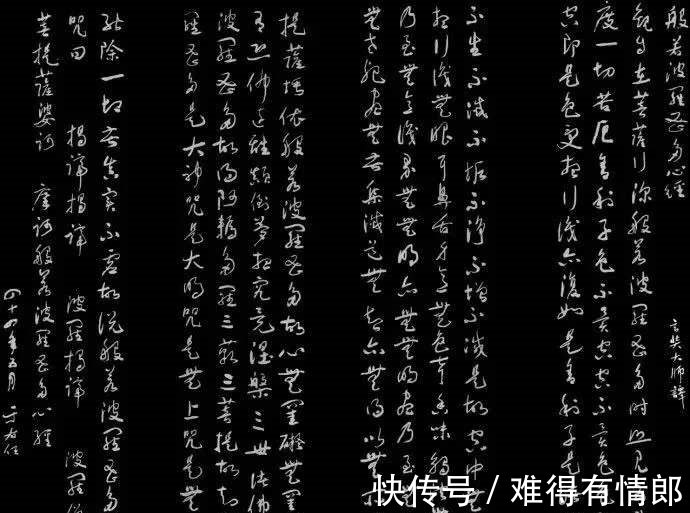 般若波羅蜜多心經 玄奘大師譯
觀自在菩薩行深般若波羅蜜多時照見
度一切苦厄舍利子色不異空空不異色
空即是色受想行識亦復如是舍利子是諸
不生不滅不垢不淨不增不減是故空中無
想行識無眼耳鼻舌身意無色聲香味觸法
乃至無意識界無無明亦無無明盡乃至無
無老死盡無苦集滅道無智亦無得以無所
提薩埵依般若波羅蜜多故心無罣礙無罣
有恐怖遠離顛倒夢想究竟涅槃三世諸佛
波羅蜜多故得阿耨多羅三藐三菩提故知
羅蜜多是大神咒是大明咒是無上咒是無
能除一切苦真實不虛故說般若波羅蜜多
咒曰 揭諦揭諦 波羅揭諦 波羅僧
菩提薩婆訶 摩訶般若波羅蜜多心經
四十四年五月 于右任
快传号/难得有情郎